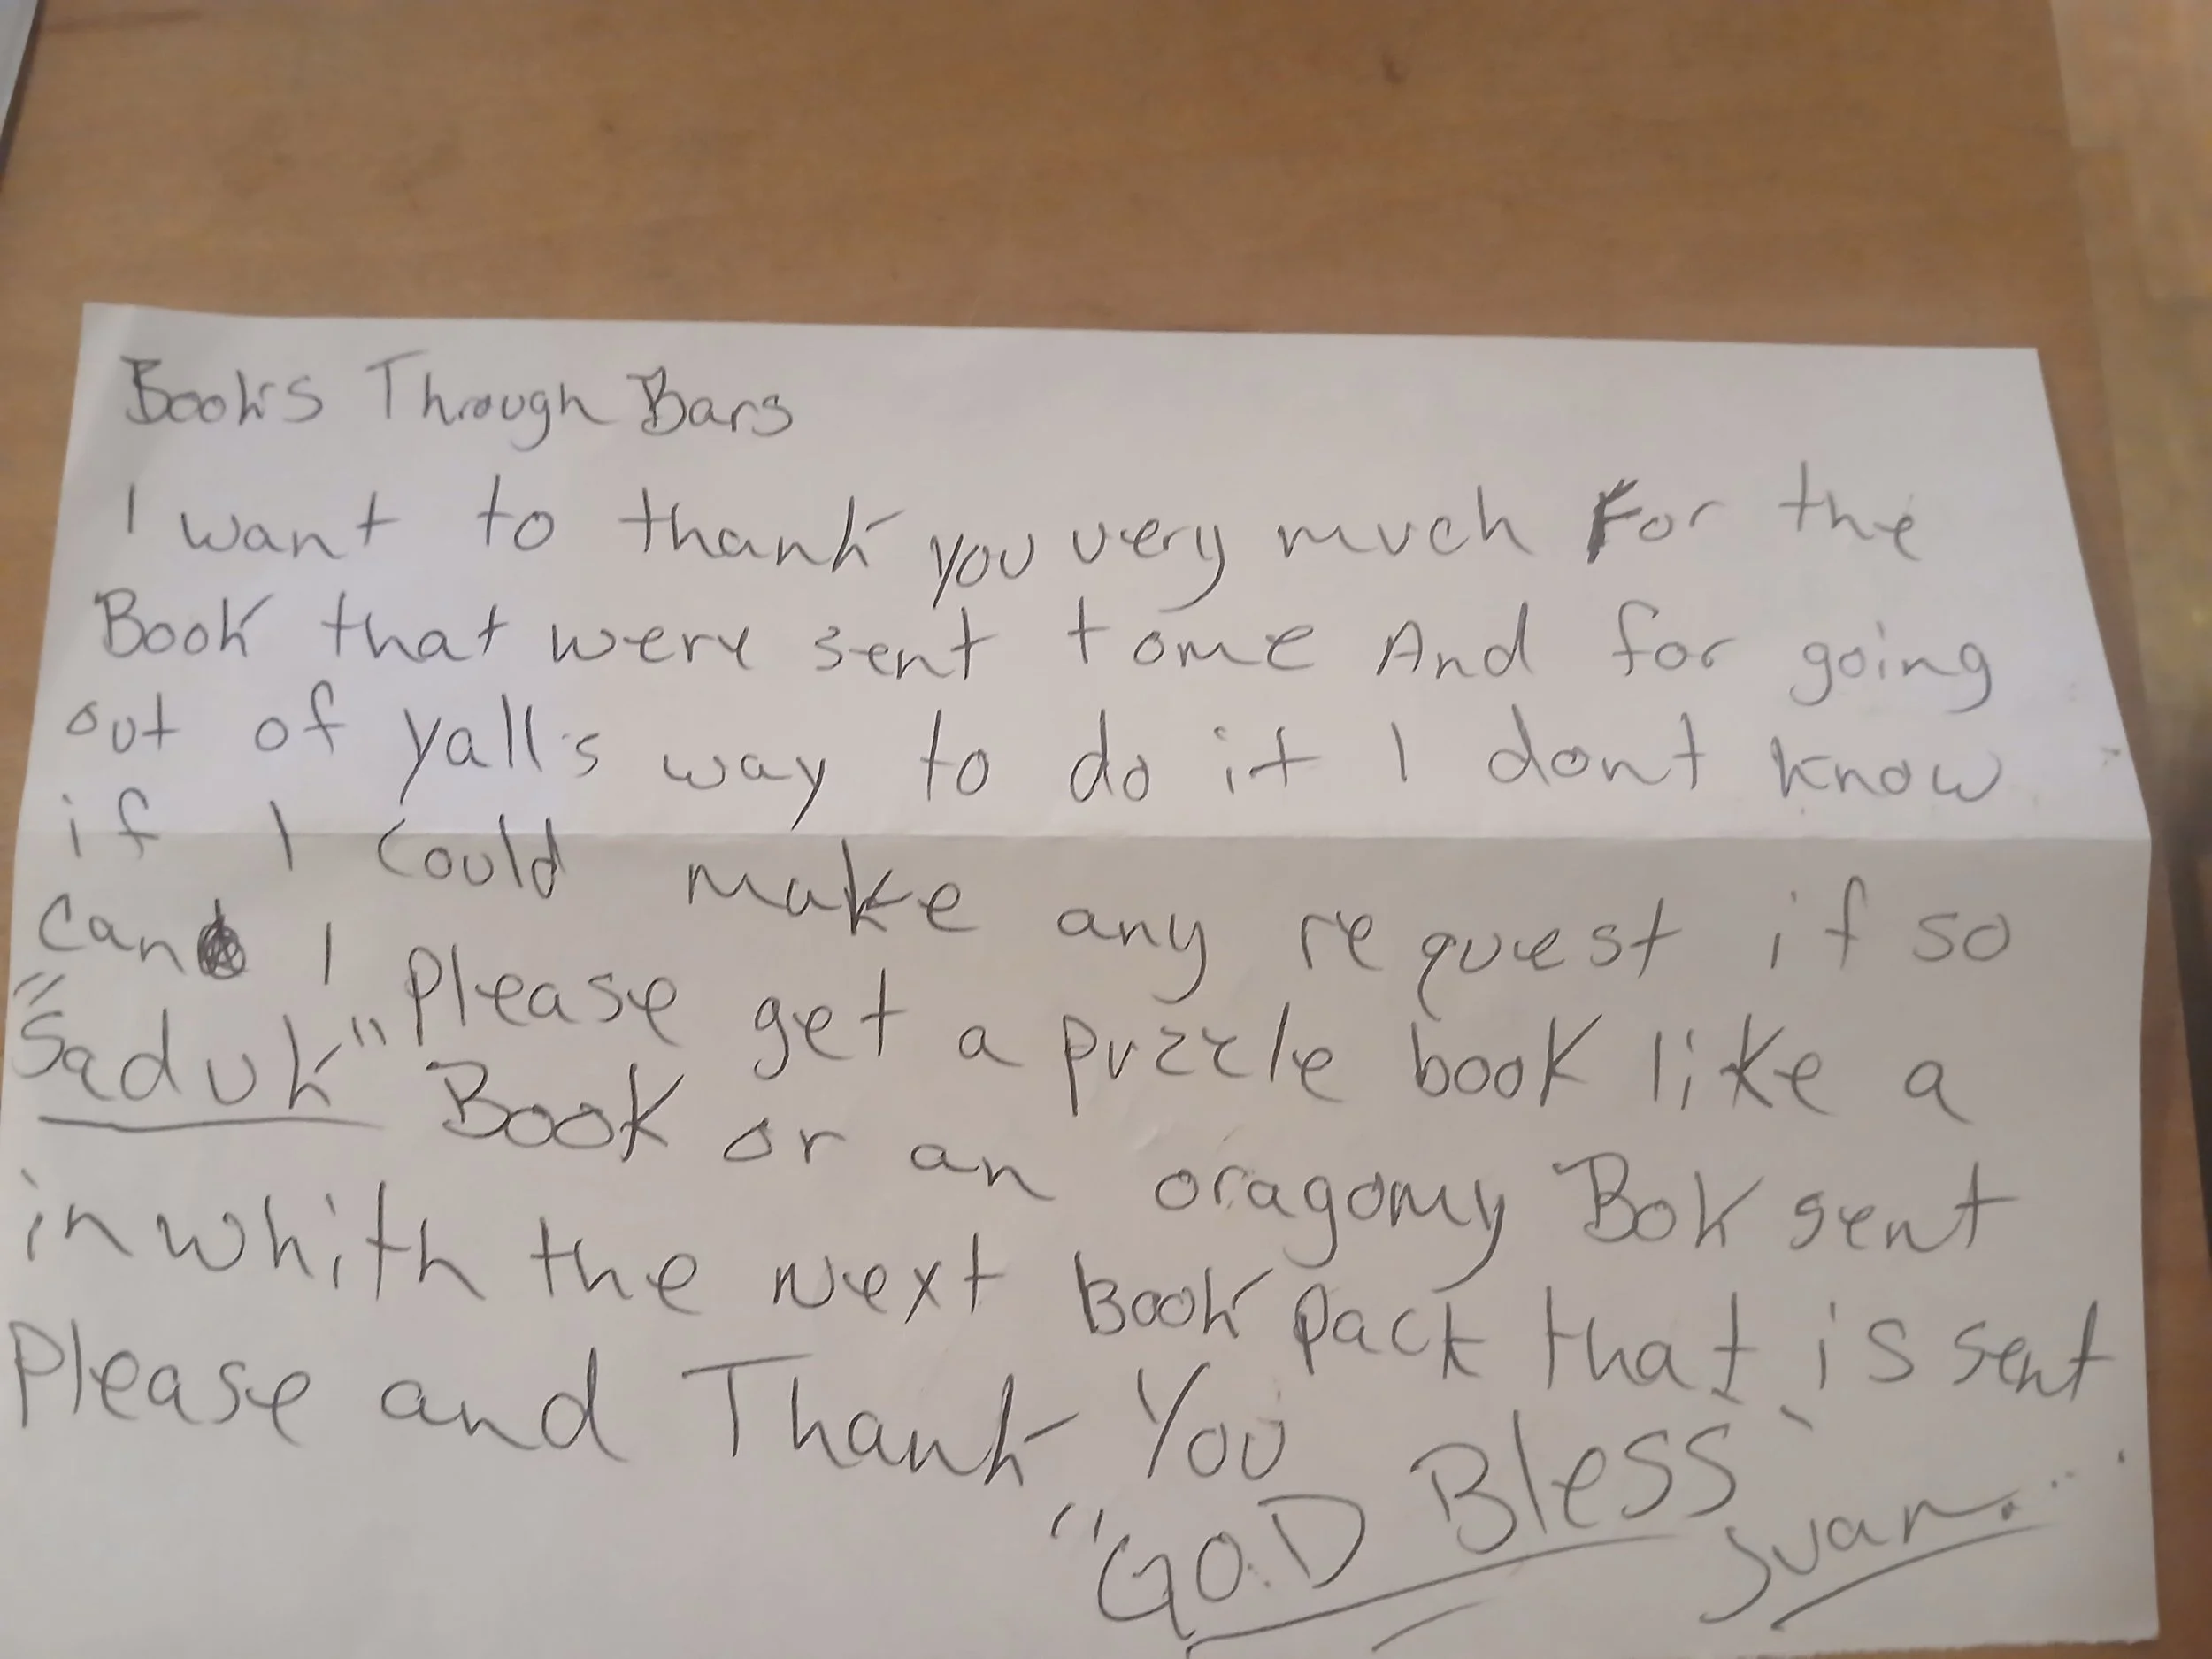 Books Through Bars
I want to thank you very much For the
Book that were sent tome And for going
out of yall's way to do it I dont know
if I could make any request if so
can I please get a puzzle book like a
"Saduk" Book or an oragomy Bok sent
in whith the next Book pack that is sent
Please and Thank You
"GO.D Bless"
Juan...